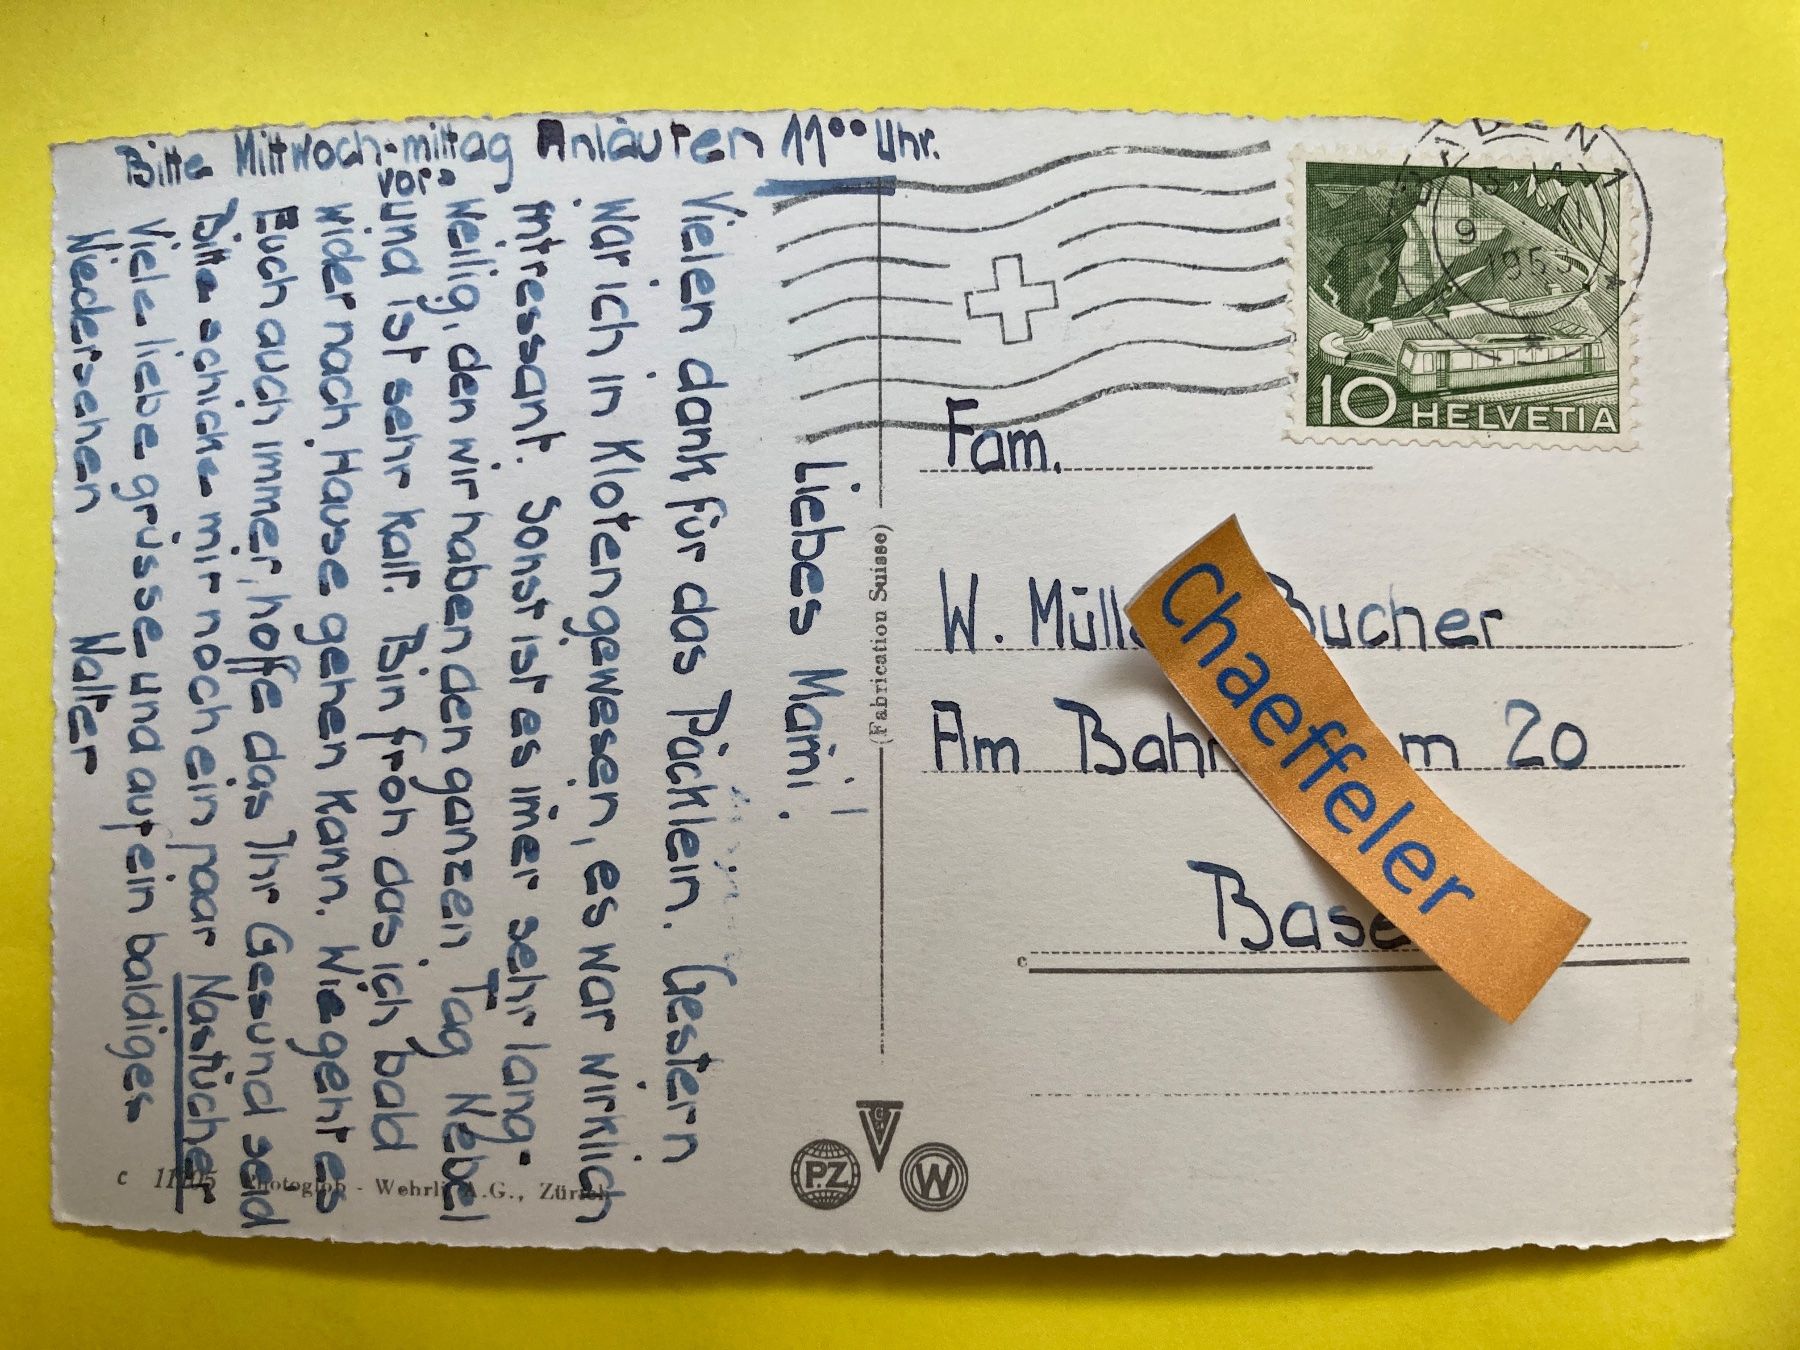 Bitte Mittwoch-mittag Anläuten 11⁰⁰ Uhr.
vor
Liebes Mami!
Vielen dank für das Päcklein. Gestern
War ich in Kloten gewesen, es war wirklich
intressant. Sonst ist es imer sehr lang-
Weilig, den wir haben den ganzen Tag Nebel
und ist sehr kalt. Bin froh das ich bald
wider nach Hause gehen kann. Wie geht es
Euch auch immer, hoffe das Ihr Gesund seid
Bitte schicke mir noch ein paar Nastücher
Viele liebe grüsse und auf ein baldiges
Wiedersehen Walter
(Fabrication Suisse)
9
10 HELVETIA
Fam.
W. Müll Bucher
Am Bah m 20
Base
Chaeffeler
c
P.Z
W
c Photoglob - Wehrli A.G., Zürich